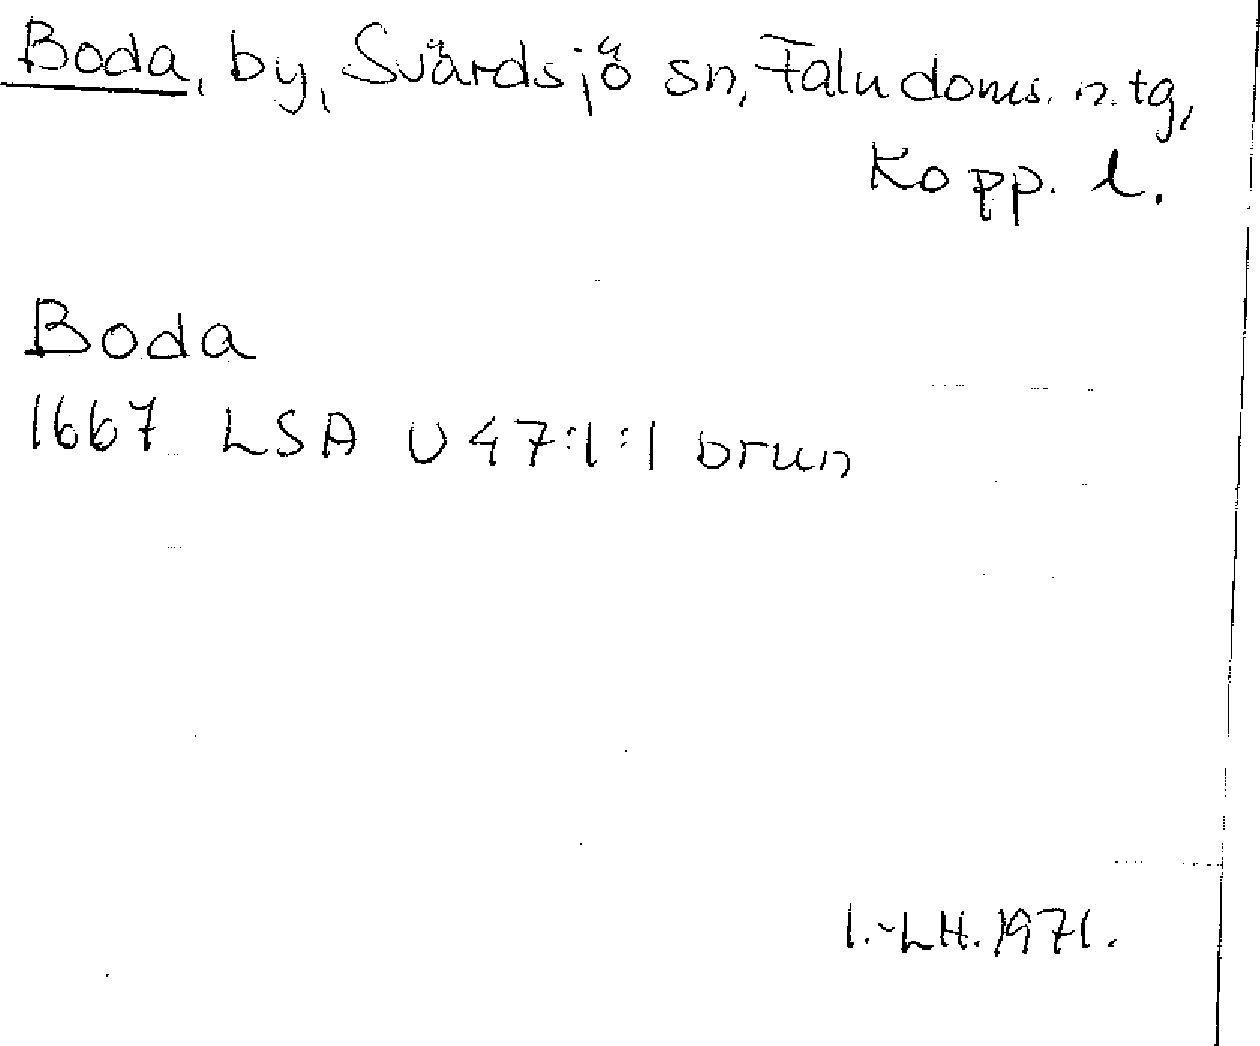 Boda, by, Svärdsjö sn, Falu doms. n. tg,
Kopp. l.
Boda
1667 LSA U 47:1:1 brun
I.-LH. 1971.